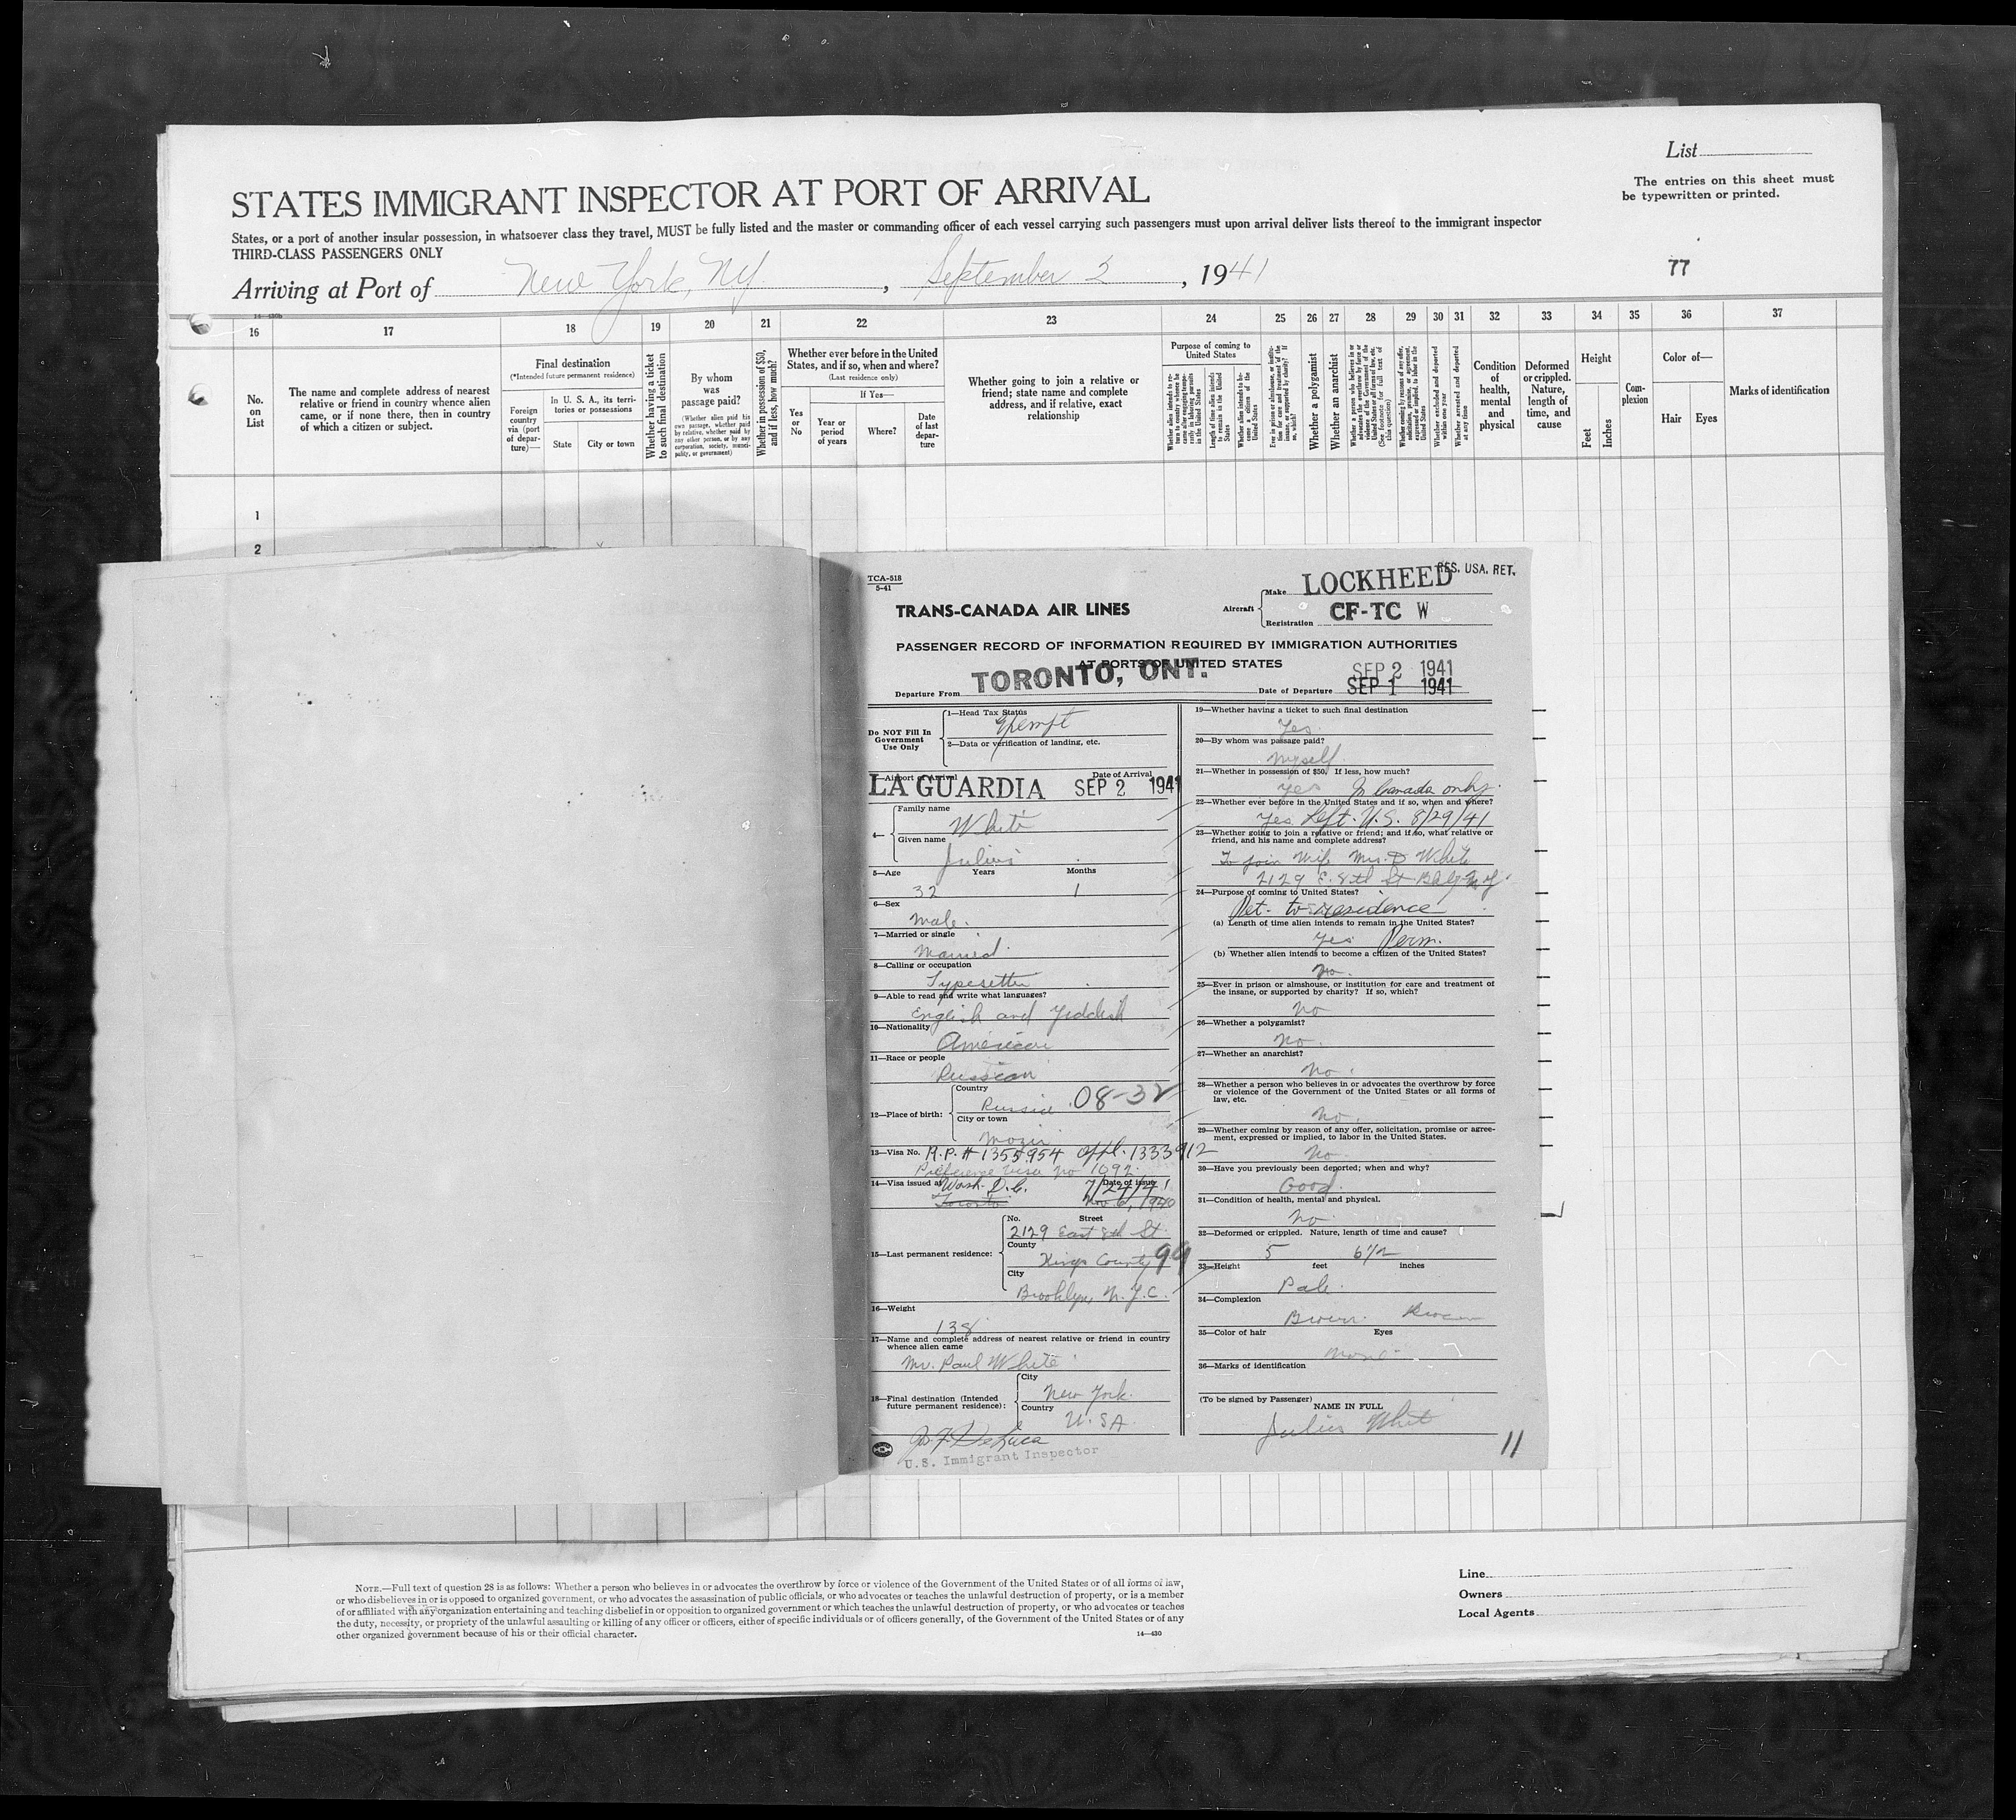 List
The entries on this sheet must
be typewritten or printed.
STATES IMMIGRANT INSPECTOR AT PORT OF ARRIVAL
States, or a port of another insular possession, in whatsoever class they travel, MUST be fully listed and the master or commanding officer of each vessel carrying such passengers must upon arrival deliver lists thereof to the immigrant inspector
THIRD-CLASS PASSENGERS ONLY
77
Arriving at Port of New York, NY , September 2 , 1941
14—430b
16 17 18 19 20 21 22 23 24 25 26 27 28 29 30 31 32 33 34 35 36 37
No.
on
List
The name and complete address of nearest
relative or friend in country whence alien
came, or if none there, then in country
of which a citizen or subject.
Final destination
(*Intended future permanent residence)
Foreign
country
via (port
of depar-
ture)—
In U. S. A., its terri-
tories or possessions
State
City or town
Whether having a ticket
to such final destination
By whom
was
passage paid?
(Whether alien paid his
own passage, whether paid
by relative, whether paid by
any other person, or by any
corporation, society, munici-
pality, or government)
Whether in possession of $50,
and if less, how much?
Whether ever before in the United
States, and if so, when and where?
(Last residence only)
Yes
or
No
If Yes—
Year or
period
of years
Where?
Date
of last
depar-
ture
Whether going to join a relative or
friend; state name and complete
address, and if relative, exact
relationship
Purpose of coming to
United States
Length of time alien intends
to remain in the United
States
Whether alien intends to be-
come a citizen of the
United States
Whether a polygamist
Whether an anarchist
Whether excluded and deported
within one year
Whether arrested and deported
at any time
Condition
of
health,
mental
and
physical
Deformed
or crippled.
Nature,
length of
time, and
cause
Height
Feet
Inches
Com-
plexion
Color of—
Hair
Eyes
Marks of identification
1
2
TCA-518
5-41
TRANS-CANADA AIR LINES
RES. USA. RET.
Aircraft
Make LOCKHEED
Registration CF-TC W
PASSENGER RECORD OF INFORMATION REQUIRED BY IMMIGRATION AUTHORITIES
AT PORTS OF UNITED STATES
SEP 2 1941
Departure From TORONTO, ONT. Date of Departure SEP 1 1941
Do NOT Fill In
Government
Use Only
1—Head Tax Status
Exempt
2—Data or verification of landing, etc.
3—Airport of Arrival Date of Arrival
LA GUARDIA SEP 2 1941
4—
Family name
White
Given name
Julius
5—Age Years Months
32 1
6—Sex
Male.
7—Married or single
Married.
8—Calling or occupation
Typesetter
9—Able to read and write what languages?
English and Yiddish
10—Nationality
American
11—Race or people
Russian
12—Place of birth:
Country
Russia 08-32
City or town
Mozir
13—Visa No. R.P. # 1355954 appl. 1333912
Preference Visa No 1092
14—Visa issued at Wash. D.C. Date of issue 7/24/41
Toronto Nov 6, 1940
15—Last permanent residence:
No. Street
2129 East 8th St.
County
Kings County 99
City
Brooklyn, N.Y.C.
16—Weight
138
17—Name and complete address of nearest relative or friend in country
whence alien came
Mr. Paul White
18—Final destination (Intended
future permanent residence):
City
New York.
Country
U.SA.
U.S. Immigrant Inspector
19—Whether having a ticket to such final destination
Yes.
20—By whom was passage paid?
Myself.
21—Whether in possession of $50. If less, how much?
Yes In Canada only.
22—Whether ever before in the United States and if so, when and where?
Yes Left U.S. 8/29/41
23—Whether going to join a relative or friend; and if so, what relative or
friend, and his name and complete address?
To join Wife Mrs. D White
2129 E. 8th St Bklyn N.Y.
24—Purpose of coming to United States?
Ret. to residence
(a) Length of time alien intends to remain in the United States?
Yes Perm.
(b) Whether alien intends to become a citizen of the United States?
No.
25—Ever in prison or almshouse, or institution for care and treatment of
the insane, or supported by charity? If so, which?
No
26—Whether a polygamist?
No.
27—Whether an anarchist?
No.
28—Whether a person who believes in or advocates the overthrow by force
or violence of the Government of the United States or all forms of
law, etc.
No.
29—Whether coming by reason of any offer, solicitation, promise or agree-
ment, expressed or implied, to labor in the United States.
No
30—Have you previously been deported; when and why?
Good.
31—Condition of health, mental and physical.
No
32—Deformed or crippled. Nature, length of time and cause?
5 6 1/2
33—Height feet inches
Pale.
34—Complexion
Brown. Brown
35—Color of hair Eyes
None
36—Marks of identification
(To be signed by Passenger)
NAME IN FULL
Julius White
11
NOTE.—Full text of question 28 is as follows: Whether a person who believes in or advocates the overthrow by force or violence of the Government of the United States or of all forms of law,
or who disbelieves in or is opposed to organized government, or who advocates the assassination of public officials, or who advocates or teaches the unlawful destruction of property, or is a member
of or affiliated with any organization entertaining and teaching disbelief in or opposition to organized government or which teaches the unlawful destruction of property, or who advocates or teaches
the duty, necessity, or propriety of the unlawful assaulting or killing of any officer or officers, either of specific individuals or of officers generally, of the Government of the United States or of any
other organized government because of his or their official character.
14—430
Line
Owners
Local Agents